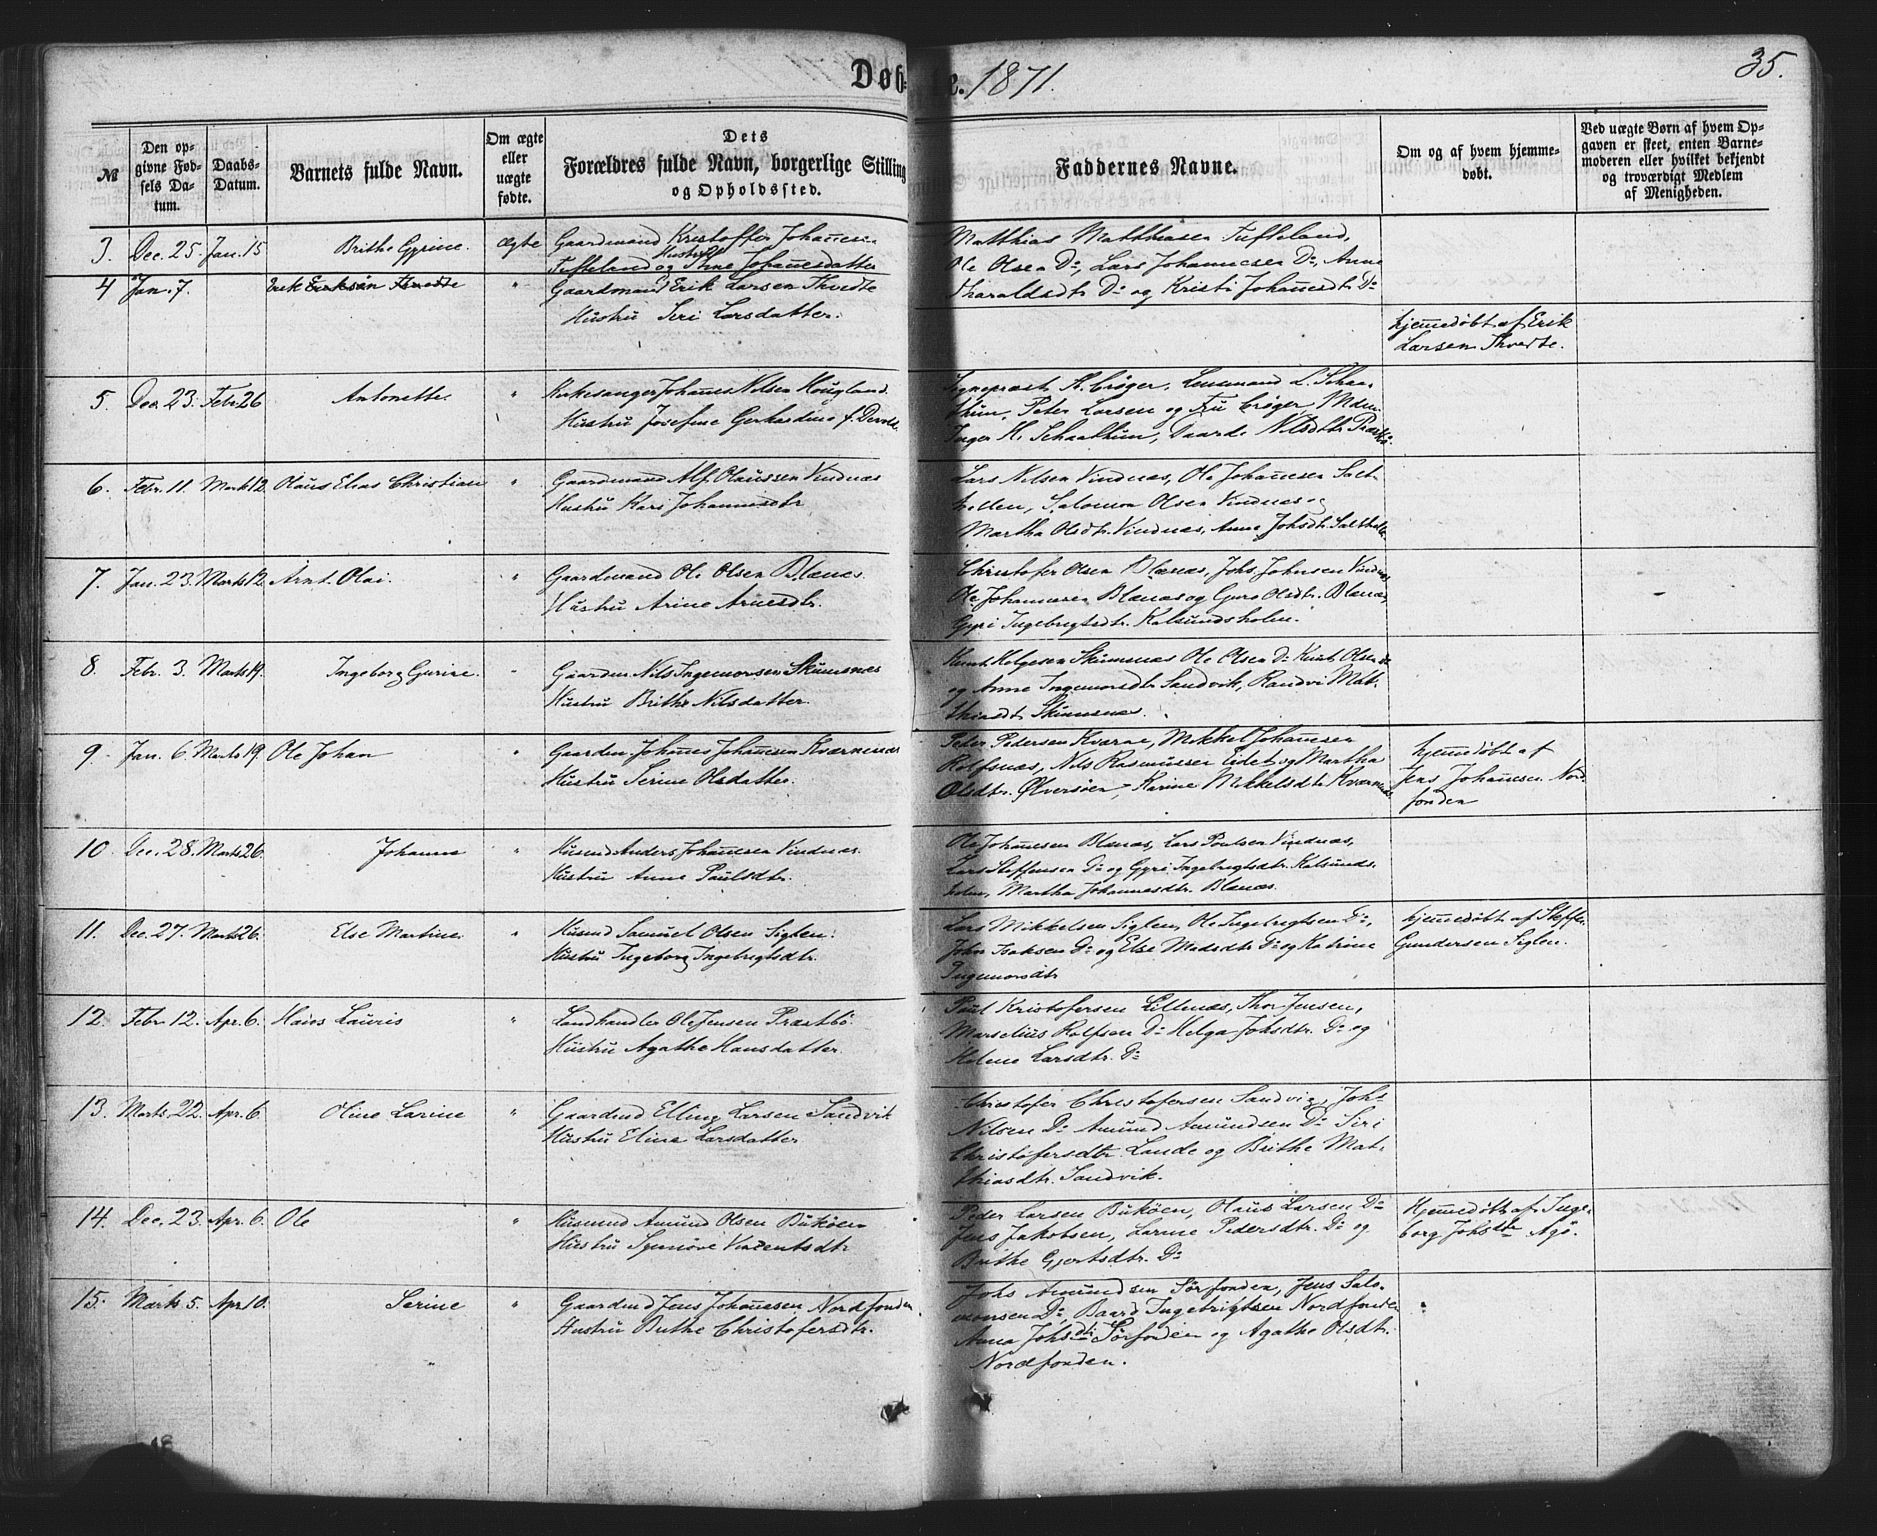 Døb
e. 1871.
35.
№
Den op-
givne Fød-
sels Da-
tum.
Daabs-
Datum.
Barnets fulde Navn.
Om ægte
eller
uægte
fødte.
Dets
Forældres fulde Navn, borgerlige Stilling
og Opholdssted.
Faddernes Navne.
Om og af hvem hjemme-
døbt.
Ved uægte Børn af hvem Op-
gaven er skeet, enten Barne-
moderen eller hvilket bekjendt
og troværdigt Medlem
af Menigheden.
3. Dec. 25. Jan. 15 Brithe Gyrine. ægte Gaardmand Kristoffer Johannesen
Hustru
Tufteland og Stine Johannesdatter
Matthias Matthiasen Tufteland,
Ole Olsen Do, Lars Johannesen Do, Anne
Tharaldsdtr Do og Kristi Johannesdtr Do
4 Jan. 7. Erik Eriksen Thvedte " Gaardmand Erik Larsen Thvedte
Hustru Siri Larsdatter.
hjemmedøbt af Erik
Larsen Thvedte.
5. Dec. 23. Febr. 26 Antonette " Kirkesanger Johannes Nilsen Hougland
Hustru Josefine Gerhardine f.
Sognepræst H. Crøger, Lensmand L. Schaa-
thun, Peter Larsen og Fru Crøger
Inger H. Schaathun, Nilsdtr
6. Febr. 11. Marts 12. Olaus Elias Christian " Gaardmand Alf Olaussen Vindnæs
Hustru Kari Johannesdtr
Lars Nilsen Vindnæs, Ole Johannesen Salt-
hellen, Salomon Olsen Vindnæs og
Martha Olsdtr. Vindnæs, Anna Johsdtr. Salthelle.
7. Jan. 23. Marts 12. Arnt Olai. " Gaardmand Ole Olsen Blænes.
Hustru Arine Arnesdtr.
Christofer Olsen Blænæs, Johs Johnsen Vindnæs
Ole Johannesen Blænæs og Guro Olsdtr. Blænæs,
Gyri Ingebrigtsdtr. Kalsundsholm.
8. Febr. 3. Marts 19. Ingeborg Gurine. " Gaardm. Nils Ingemorsen Skumsnæs
Hustru Brithe Nilsdatter.
Knut Helgesen Skumsnæs Ole Olsen Do Knut Olsen Do
og Anne Ingemorsdtr Sandvik, Randvi Mat-
thiasdtr Skumsnæs.
9. Jan. 6. Marts 19. Ole Johan " Gaardm. Johannes Johannesen Kværnenæs
Hustru Serine Olsdatter.
Peder Pedersen Kværne, Mikkel Johannesen
Rolfsnæs, Nils Rasmussen Eidet og Martha
Olsdtr. Ølversøen, Karine Mikkelsdtr Kværnenæs
hjemmedøbt af
Jens Johannesen Nord-
fonden
10. Dec. 28. Marts 26. Johanne " Husmd Anders Johannesen Vindnæs.
Hustru Anne Paulsdtr.
Ole Johannesen Blænæs, Lars Poulsen Vindnæs,
Lars Steffensen Do og Gyri Ingebrigtsdtr. Kalsunds-
holm, Martha Johannesdtr. Blænæs.
11. Dec. 27. Marts 26. Else Martine. " Husmd Samuel Olsen Siglen.
Hustru Ingeborg Ingebrigtsdtr.
Lars Mikkelsen Siglen, Ole Ingebrigtsen Do,
John Isaksen Do og Else Madsdtr Do og Katrine
Ingemorsdtr
hjemmedøbt af Steffen
Gundersen Siglen.
12. Febr. 12. Apr. 6. Hans Lauris " Landhandler Ole Jensen Præstbø
Hustru Agathe Hansdatter.
Paul Kristofersen Lillenæs, Thor Jensen,
Marselius Rolfsen Do Helga Johsdtr. Do og
Helene Larsdtr. Do
13. Marts. 22. Apr. 6. Oline Larine " Gaardmd Elling Larsen Sandvik
Hustru Eline Larsdatter
Christofer Christofersen Sandvig, Johs
Nilsen Do Amund Amundsen Do Siri
Christofersdtr. Lande og Brithe Mat-
thiasdtr. Sandvik.
14. Dec. 23. Apr. 6. Ole " Husmd Amund Olsen Bukøen
Hustru Synnøve Vincentsdtr
Peder Larsen Bukøen, Olaus Larsen Do
Jens Jakobsen, Larine Pedersdtr. Do og
Brithe Gjertsdtr. Do
Hjemmedøbt af Inge-
borg Johsdtr Agø.
15. Marts. 5. Apr 10. Serine " Gaardmd Jens Johannesen Nordfonden
Hustru Brithe Christofersdtr.
Johs Amundsen Sørfonden, Jens Salo-
monsen Do, Baard Ingebrigtsen Nordfonden
Anna Johsdtr Sørfonden og Agathe Olsdtr.
Nordfonden.